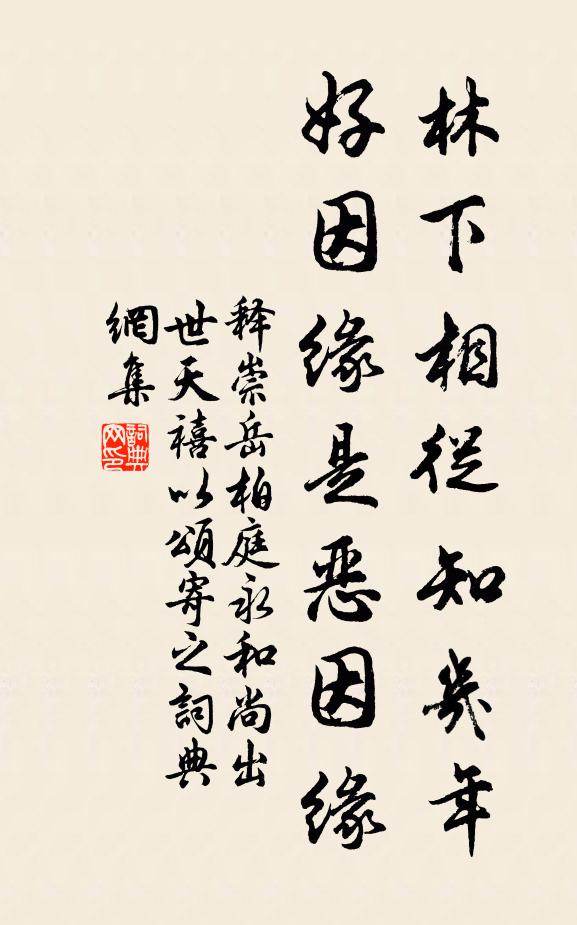 林下相從知幾年
好因緣是惡因緣
释崇岳柏庭永和尚出
世天禧以頌寄之詞典
網集
詞典網印